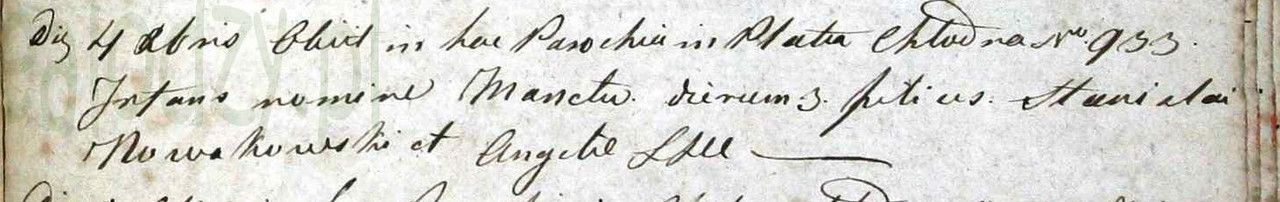 Die 4 Xbris Obiit in hac Parochia in Platea Chłodna No. 933.
Infans nomine dierum 3. filius. Stanislai
Nowakowski et Angele LLee